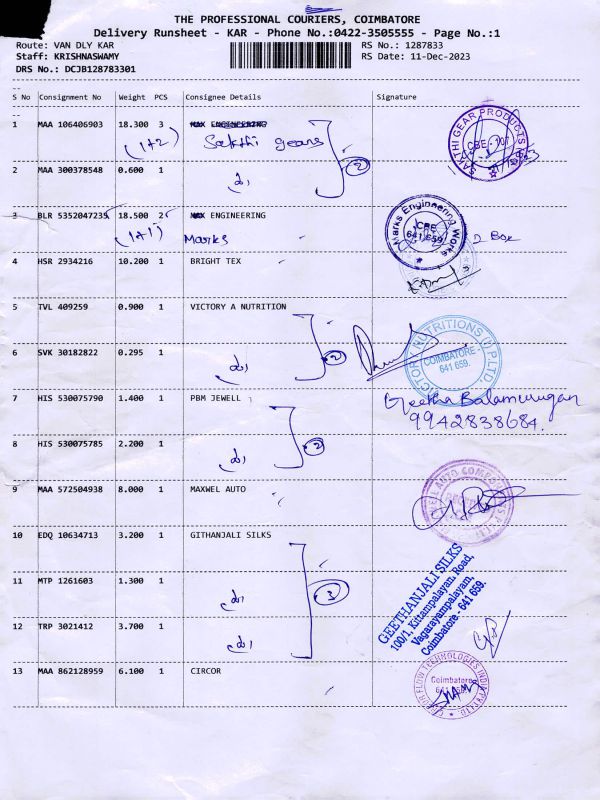 THE PROFESSIONAL COURIERS, COIMBATORE
Delivery Runsheet - KAR - Phone No.:0422-3505555 - Page No.:1
Route: VAN DLY KAR
RS No.: 1287833
Staff: KRISHNASWAMY
RS Date: 11-Dec-2023
DRS No.: DCJB128783301
S No Consignment No Weight PCS Consignee Details Signature
1 MAA 106406903 18.300 3 MAX ENGINEERING
(1+2) Sakthi gears
SAKTHI GEAR PRODUCTS
CBE - 107
2 MAA 300378548 0.600 1
2
3 BLR 5352047235 18.500 2 MAX ENGINEERING
(1+1) Marks
Marks Engineering Works
CBE
641 659.
2 Box
4 HSR 2934216 10.200 1 BRIGHT TEX
5 TVL 409259 0.900 1 VICTORY A NUTRITION
6 SVK 30182822 0.295 1
2
NUTRITIONS (I) P LTD.
COIMBATORE -
641 659.
7 HIS 530075790 1.400 1 PBM JEWELL
Geetha Balamurugan
9942838684.
8 HIS 530075785 2.200 1
2
9 MAA 572504938 8.000 1 MAXWEL AUTO
10 EDQ 10634713 3.200 1 GITHANJALI SILKS
11 MTP 1261603 1.300 1
3
GEETHANJALI SILKS
100/1, Kittampalayan. Road,
Vagarayampalayam,
Coimbatore - 641 659.
12 TRP 3021412 3.700 1
13 MAA 862128959 6.100 1 CIRCOR
CIRCOR FLOW TECHNOLOGIES INDIA PVT LTD.
Coimbatore